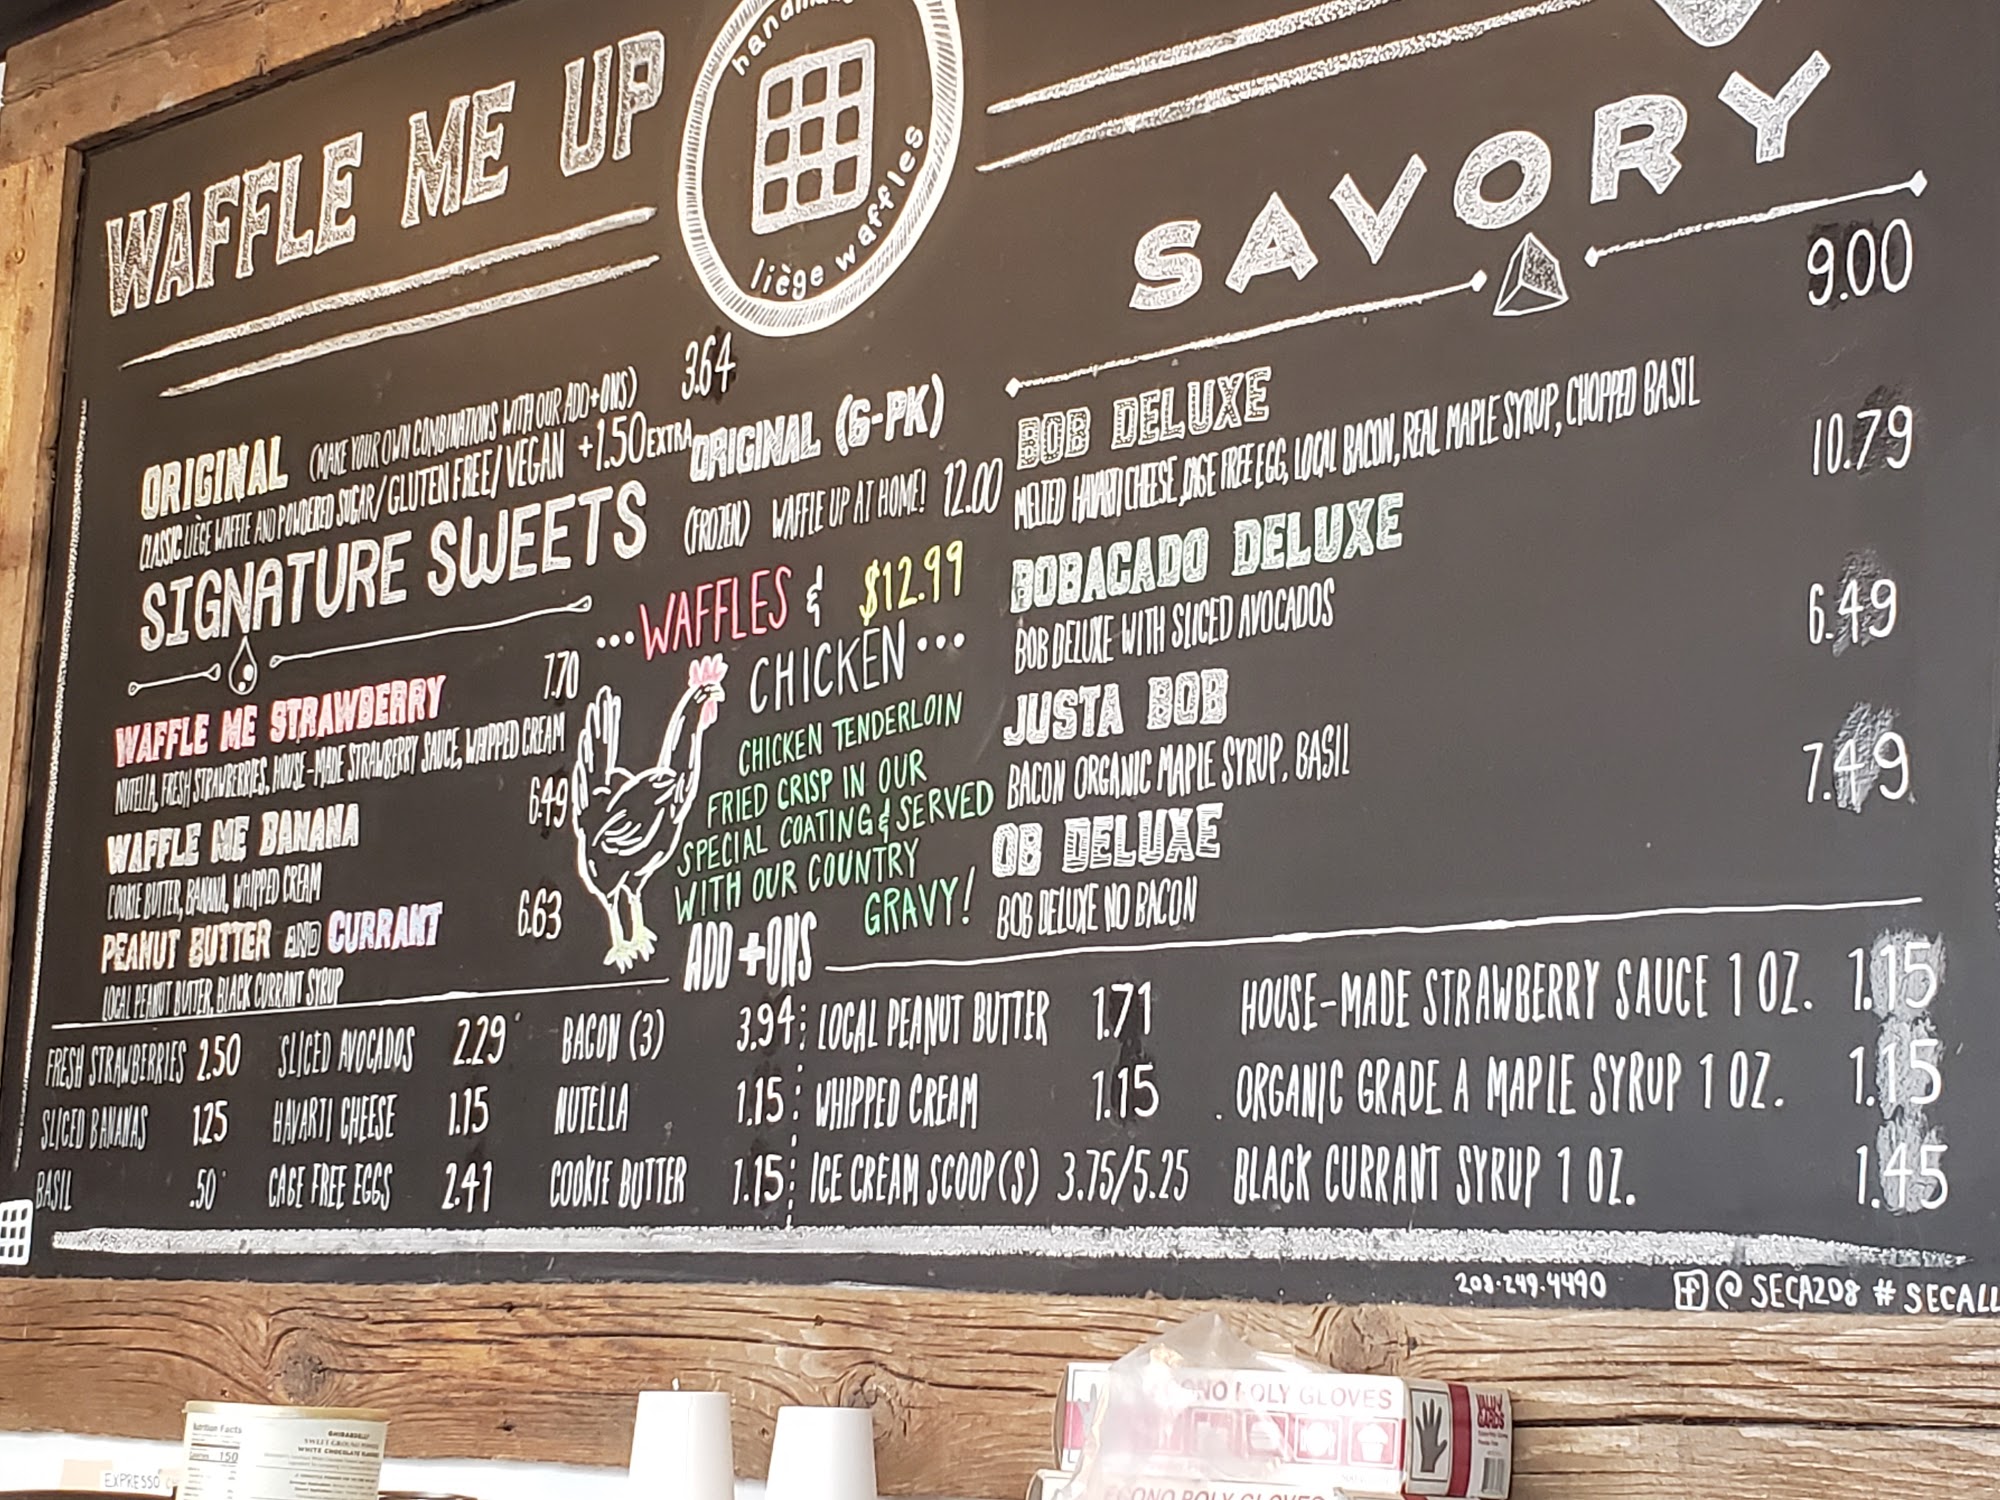 WAFFLE ME UP
liège waffles
ORIGINAL (MAKE YOUR OWN COMBINATIONS WITH OUR ADD+ONS) 3.64
CLASSIC LIÈGE WAFFLE AND POWDERED SUGAR/GLUTEN FREE/VEGAN +1.50 EXTRA
ORIGINAL (6-PK)
(FROZEN) WAFFLE UP AT HOME! 12.00
SIGNATURE SWEETS
WAFFLE ME STRAWBERRY 7.70
NUTELLA, FRESH STRAWBERRIES, HOUSE-MADE STRAWBERRY SAUCE, WHIPPED CREAM
WAFFLE ME BANANA 6.49
COOKIE BUTTER, BANANA, WHIPPED CREAM
PEANUT BUTTER AND CURRANT 6.63
LOCAL PEANUT BUTTER, BLACK CURRANT SYRUP
...WAFFLES & $12.99
CHICKEN...
CHICKEN TENDERLOIN
FRIED CRISP IN OUR
SPECIAL COATING & SERVED
WITH OUR COUNTRY
GRAVY!
SAVORY
BOB DELUXE 9.00
MELTED HAVARTI CHEESE, CAGE FREE EGG, LOCAL BACON, REAL MAPLE SYRUP, CHOPPED BASIL
BOBACADO DELUXE 10.79
BOB DELUXE WITH SLICED AVOCADOS
JUSTA BOB 6.49
BACON ORGANIC MAPLE SYRUP. BASIL
OB DELUXE 7.49
BOB DELUXE NO BACON
ADD+ONS
FRESH STRAWBERRIES 2.50 SLICED AVOCADOS 2.29 BACON (3) 3.94 LOCAL PEANUT BUTTER 1.71 HOUSE-MADE STRAWBERRY SAUCE 1 OZ. 1.15
SLICED BANANAS 1.25 HAVARTI CHEESE 1.15 NUTELLA 1.15 WHIPPED CREAM 1.15 ORGANIC GRADE A MAPLE SYRUP 1 OZ. 1.15
BASIL .50 CAGE FREE EGGS 2.41 COOKIE BUTTER 1.15 ICE CREAM SCOOP(S) 3.75/5.25 BLACK CURRANT SYRUP 1 OZ. 1.45
208.249.4490 @SECA208 #SECALL
POLY GLOVES
Nutrition Facts
150
GHIRARDELLI
SWEET GROUND POWDER
WHITE CHOCOLATE FLAVORED
EXPRESSO